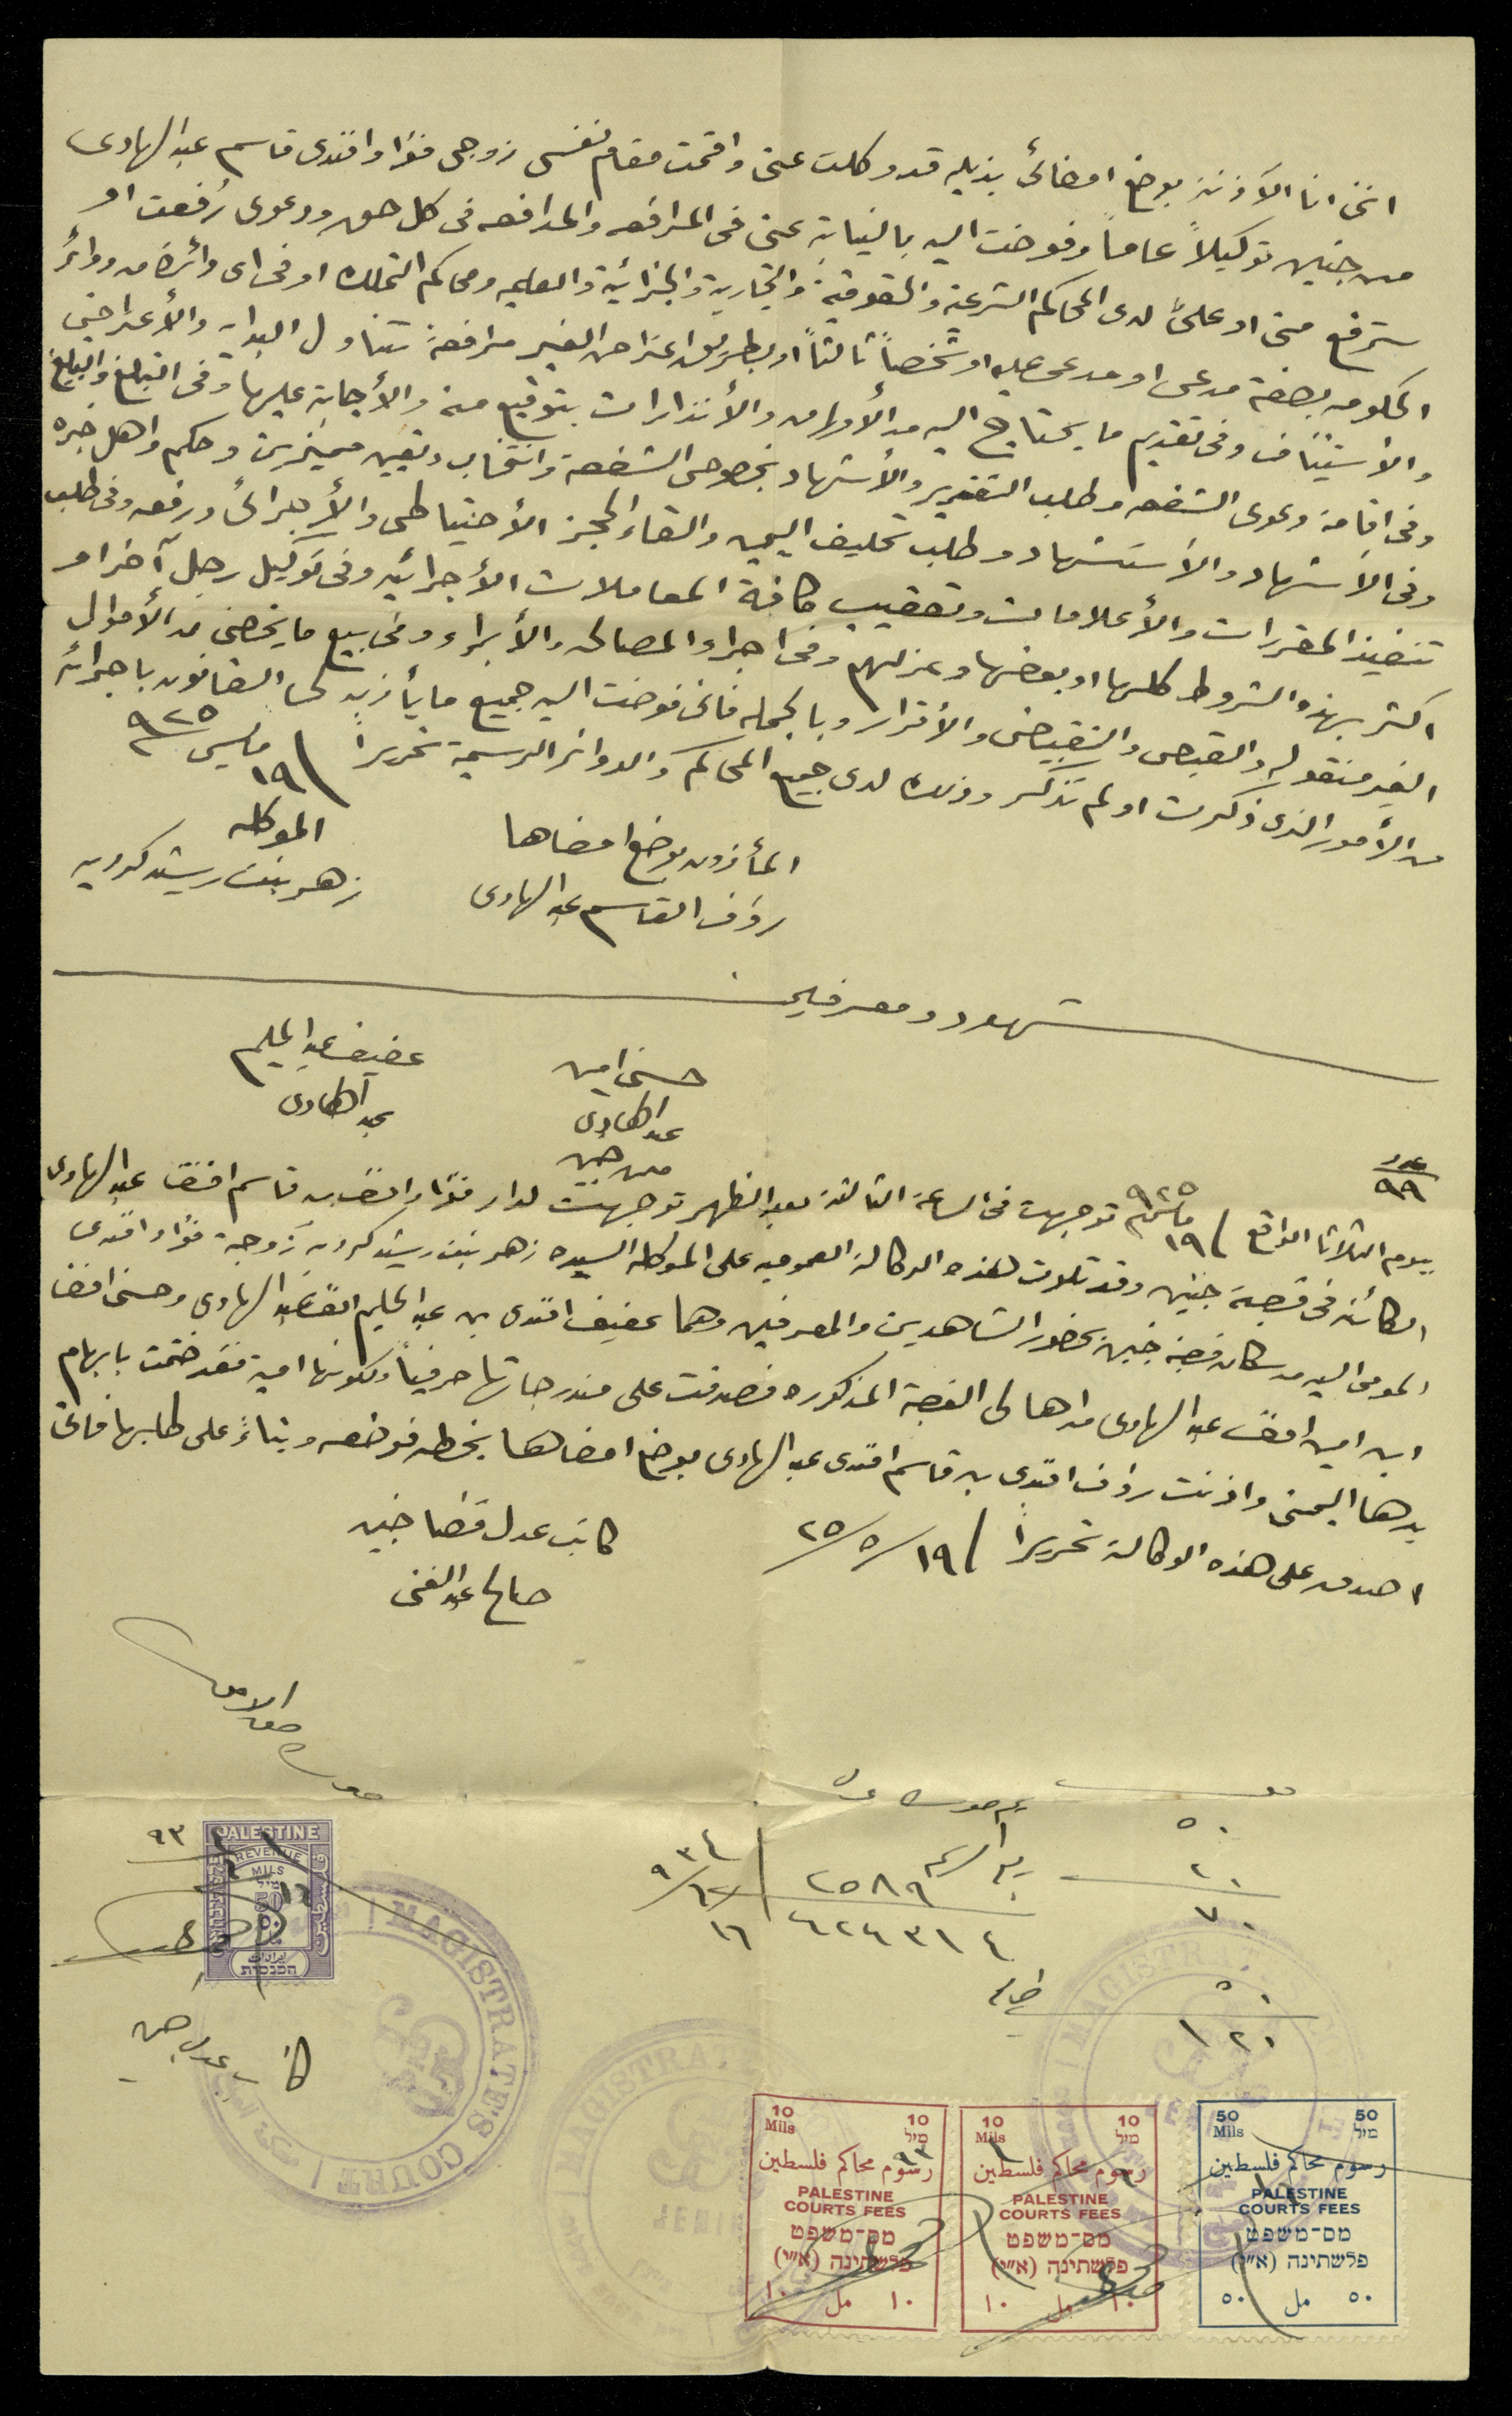 انني انا الآذنة بوضع امضائي بذيله قد وكلت عني واقمت مقام نفسي زوجي فؤاد افندي قاسم عبد الهادي
من جنين توكيلاً عاماً وفوضت اليه بالنيابة عني في المرافعه والمدافعه في كل حق ودعوى رُفعت او
سترفع مني او عليّ لدى المحاكم الشرعية والحقوقية والتجارية والجزائية والصلحيه ومحاكم التمليك او في اي دائرة من دوائر
الحكومه بصفة مدعي او مدعى عليه او شخصاً ثالثاً او بطريق اعتراض الغير مرافعة تتناول البدايه والأعتراض
والأستئناف وفي تقديم ما يحتاج اليه من الأوراق والأنذارات بتوقيع منه والأجابة عليها وفي التبلغ والتبليغ
وفي اقامة دعوى الشفعه وطلب التقرير والأشهاد بخصوص الشفعة وانتخاب وتعيين مميزين وحكم واهل خبره
وفي الأشهاد والأستشهاد وطلب تحليف اليمين والقاء الحجز الأحتياطي والأجرائي ورفعه وفي طلب
تنفيذ المقررات والأعلامات وتعقيب كافة المعاملات الأجرائيه وفي توكيل رجل آخر او
اكثر بهذه الشروط كلها او بعضها وعزلهم وفي اجراء المصالحه والأبراء وفي بيع ما يخصني من الأموال
الغير منقوله والقبض والتقبيض والأقرار وبالجمله فاني فوضت اليه جميع ما يأذن لنا القانون باجرائه
من الأمور الذي ذكرت او لم تذكر وذلك لدى جميع المحاكم والدوائر الرسمية تحريراً / ١٩ مايس ٩٢٥
المأذون بوضع امضاها
رؤف القاسم عبد الهادي
الموكله
زهر بنت رشيد كرديه
شهود ومعرفين
حسني امين
عبد الهادي
من جنين
عفيف عبد الحليم
عبد الهادي
عدد
٩٩
بيوم الثلاثا الواقع / ١٩ مايس ٩٢٥ توجهت في الساعة الثالثة بعد الظهر توجهت لدار فؤاد افندي بن قاسم افندي عبد الهادي
الكائنه في قصبة جنين وقد تلوت هذه الوكالة العموميه على الموكله السيده زهر بنت رشيد كرديه زوجة فؤاد افندي
المومى اليه من سكان قصبة جنين بحضور الشاهدين والمعرفين وهما عفيف افندي بن عبد الحليم افندي عبد الهادي وحسني افندي
ابن امين افندي عبد الهادي من اهالي القصبة المذكوره فصدقت على مندرجاتها حرفياً ولكونها امية فقد ختمت بابهام
يدها اليمنى واذنت رؤف افندي بن قاسم افندي عبد الهادي بوضع امضاها بخطه فوضعه وبناءً على طلبها فاني
اصدق على هذه الوكالة تحريراً / ١٩ / ٥ / ٢٥
كاتب عدل قضا جنين
صالح عبد الغني
٥٠
٢٠
٧٠
٥٠
١٢٠
٢٥٨٩
٦٢٤٣١٤
١٦ / ١٢ / ٩٣٤
كاتب عدل جنين
PALESTINE
REVENUE
MILS
מיל
50
٥٠
ايرادات
הכנסות
MAGISTRATES COURT
MAGISTRATES
JENIN
10 Mils 10 מיל
رسوم محاكم فلسطين
PALESTINE
COURTS FEES
מס־משפט
פלשתינה (א״י)
١٠ مل ١٠
10 Mils 10 מיל
رسوم محاكم فلسطين
PALESTINE
COURTS FEES
מס־משפט
פלשתינה (א״י)
١٠ مل ١٠
50 Mils 50 מיל
رسوم محاكم فلسطين
PALESTINE
COURTS FEES
מס־משפט
פלשתינה (א״י)
٥٠ مل ٥٠